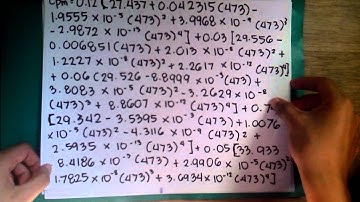 Cpm = 0.12 [27.437 + 0.042315 (473) -
1.9555 × 10⁻⁵ (473)² + 3.9968 × 10⁻⁹ (473)³
- 2.9872 × 10⁻¹³ (473)⁴] + 0.03 [29.556 -
0.006851 (473) + 2.013 × 10⁻⁵ (473)² +
1.2227 × 10⁻⁸ (473)² + 2.2617 × 10⁻¹² (473)⁴]
+ 0.06 (29.526 - 8.8999 × 10⁻³ (473) +
3.8083 × 10⁻⁵ (473)² - 3.2629 × 10⁻⁸
(473)³ + 8.8607 × 10⁻¹² (473)⁴] + 0.7
[29.342 - 3.5395 × 10⁻³ (473) + 1.0076
× 10⁻⁵ (473)² - 4.3116 × 10⁻⁹ (473)² +
2.5935 × 10⁻¹³ (473)⁴] + 0.05 [33.933
8.4186 × 10⁻³ (473) + 2.9906 × 10⁻⁵ (473)²
1.7825 × 10⁻⁸ (473)³ + 3.6934 × 10⁻¹² (473)⁴]